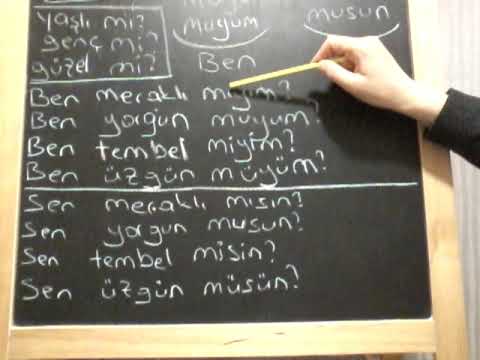 yaşlı mı?
genç mi?
güzel mi?
müyüm
musun
Ben
Ben meraklı mıyım?
Ben yorgun muyum?
Ben tembel miyim?
Ben üzgün müyüm?
Sen meraklı mısın?
Sen yorgun musun?
Sen tembel misin?
Sen üzgün müsün?